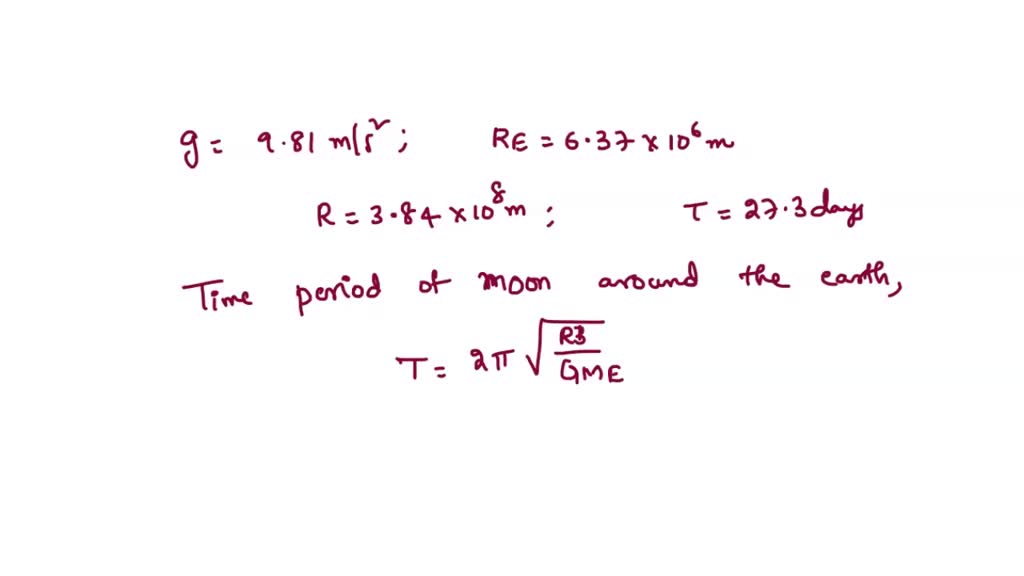 g = 9.81 m/s²; RE = 6.37 × 10⁶ m
R = 3.84 × 10⁸ m; T = 27.3 days
Time period of moon around the earth,
T = 2π √(R3/GME)